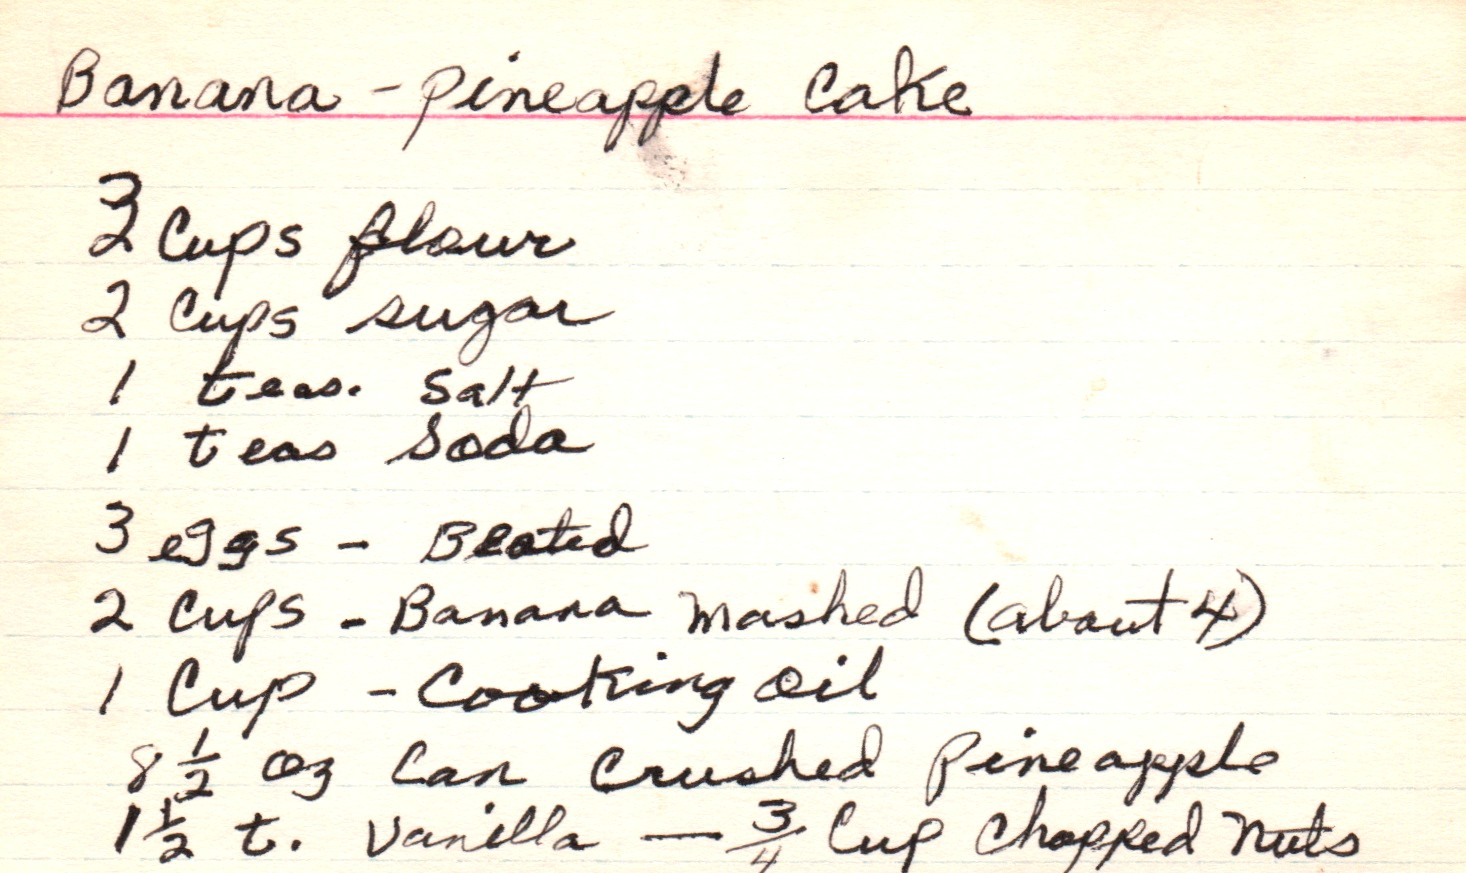 Banana - Pineapple Cake
3 Cups flour
2 Cups sugar
1 teas. Salt
1 teas Soda
3 eggs - Beated
2 Cups - Banana Mashed (about 4)
1 Cup - Cooking Oil
8 1/2 oz Can Crushed Pineapple
1 1/2 t. Vanilla — 3/4 Cup Chopped Nuts